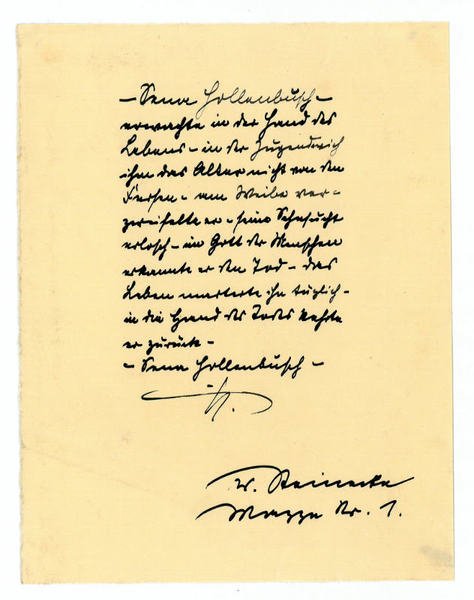 – Sena Hollenbusch –
erwachte in der Hand des
Lebens – in der Jugend wich
ihm das Alter nicht von den
Fersen – am Weibe ver-
zweifelte er – seine Sehnsucht
erlosch – im Gott der Menschen
erkannte er den Tod – das
Leben marterte ihn täglich –
in die Hand des Todes kehrte
er zurück –
– Sena Hollenbusch –
W. Steinecke
Mazze Nr. 1.